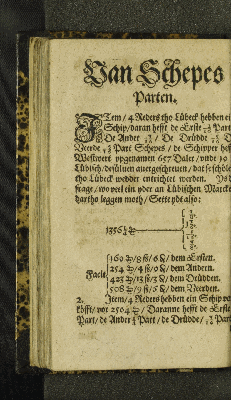 Van Schepes
Parten.
ITem / 4 Reders tho Lübeck hebben ei
Schip / daran hefft de Erste Part
De Ander / De Drüdde
Veerde Part Schepes / de Schipper heff
Westwert upgenamen 657 Daler / unde
Lübisch / desülven avergeschreven / dat
tho Lübeck wedder entrichtet werden. Ys d
frage / wo veel ein yder an Lübischen Marcke
dartho leggen moth / Sette ydt also:
1356
Facit
160 / 9 ß / 6 / dem Ersten.
254 / 4 ß / 9 / dem Andern.
423 / 13 ß / 3 / dem Drüdden.
508 / 9 ß / 6 / dem Veerden.
2. Item / 4 Reders hebben ein Schip vor
köfft / vor 2504 / Daranne hefft de Erst
Part / de Ander Part / de Drüdde / Part